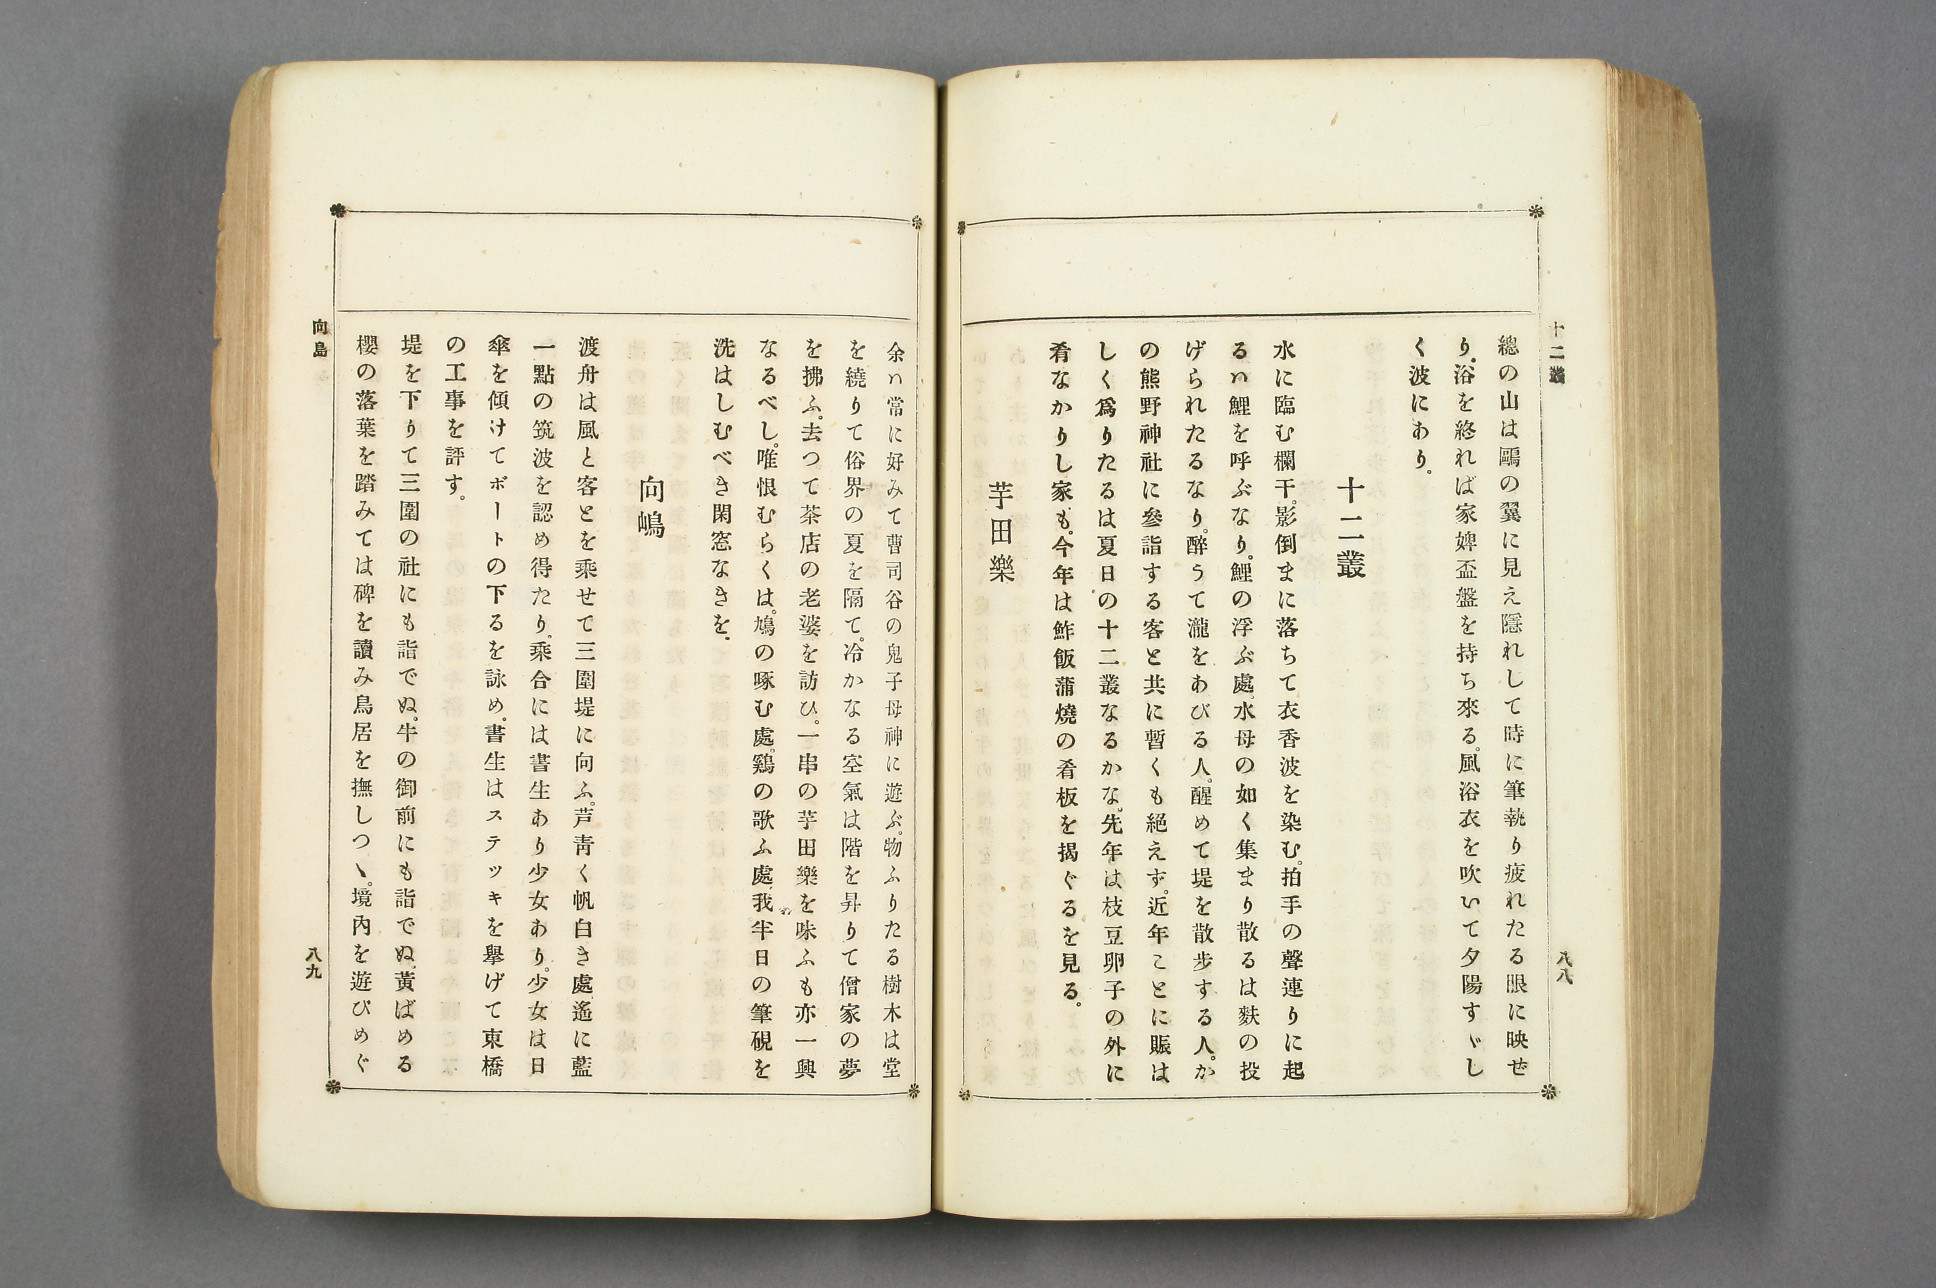 十二叢
八八
總の山は鷗の翼に見え隱れして時に筆執り疲れたる眼に映ぜ
り。浴を終れば家婢盃盤を持ち來る。風浴衣を吹いて夕陽すゞし
く波にあり。
十二叢
水に臨む欄干。影倒まに落ちて衣香波を染む。拍手の聲連りに起
るハ鯉を呼ぶなり。鯉の浮ぶ處、水母の如く集まり散るは麩の投
げられたるなり。醉うて瀧をあびる人。醒めて堤を散步する人。か
の熊野神社に參詣する客と共に暫くも絕えず。近年ことに賑は
しく爲りたるは夏日の十二叢なるかな。先年は枝豆卵子の外に
肴なかりし家も。今年は鮓飯蒲燒の肴板を揭ぐるを見る。
芋田樂
余ハ常に好みて曹司谷の鬼子母神に遊ぶ。物ふりたる樹木は堂
を繞りて俗界の夏を隔て。冷かなる空氣は階を昇りて僧家の夢
を拂ふ。去つて茶店の老婆を訪ひ。一串の芋田樂を味ふも亦一興
なるべし。唯恨むらくは。鳩の啄む處。鷄の歌ふ處、我半日の筆硯を
洗はしむべき閑窓なきを。
向嶋
渡舟は風と客とを乘せて三圍堤に向ふ。芦靑く帆白き處、遙に藍
一點の筑波を認め得たり。乘合には書生あり少女あり。少女は日
傘を傾けてボートの下るを詠め。書生はステッキを擧げて東橋
の工事を評す。
堤を下りて三圍の社にも詣でぬ。牛の御前にも詣でぬ、黃ばめる
櫻の落葉を踏みては碑を讀み鳥居を撫しつゝ。境內を遊びめぐ
向島
八九